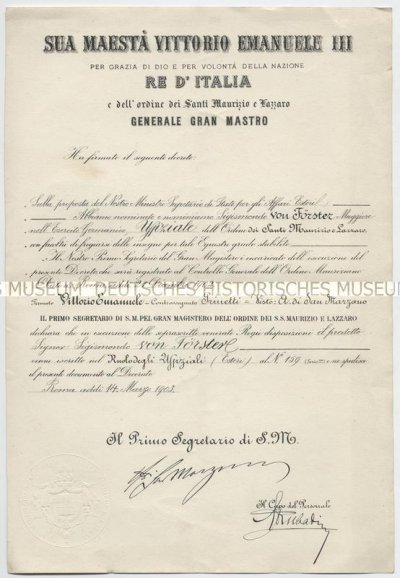 SUA MAESTÀ VITTORIO EMANUELE III
PER GRAZIA DI DIO E PER VOLONTÀ DELLA NAZIONE
RE D'ITALIA
e dell'ordine dei Santi Maurizio e Lazzaro
GENERALE GRAN MASTRO
Ha firmato il seguente decreto:
Sulla proposta del Nostro Ministro Segretario di Stato per gli Affari Esteri
Abbiamo nominato e nominiamo Sigismondo von Förster, Maggiore
nell'Esercito Germanico, Uffiziale dell'Ordine dei Santi Maurizio e Lazzaro,
con facoltà di fregiarsi delle insegne per tale Equestre grado stabilite
Il Nostro Primo Segretario del Gran Magistero è incaricato dell'esecuzione del
presente Decreto che sarà registrato al Controllo Generale dell'Ordine Mauriziano
DEUTSCHES HISTORISCHES MUSEUM
Firmato Vittorio Emanuele - Controsegnato Prinetti - Visto: C. di San Marzano
IL PRIMO SEGRETARIO DI S.M. PEL GRAN MAGISTERO DELL'ORDINE DEI S.S. MAURIZIO E LAZZARO
dichiara che in esecuzione delle soprascritte venerate Regie disposizioni il predetto
Signor Sigismondo von Förster
venne iscritto nel Ruolo degli Uffiziali (Esteri) al N.º 139 e ne spedisce
il presente documento al Decorato
Roma addì 14 Marzo 1903.
Il Primo Segretario di S.M.
Il Capo del Personale